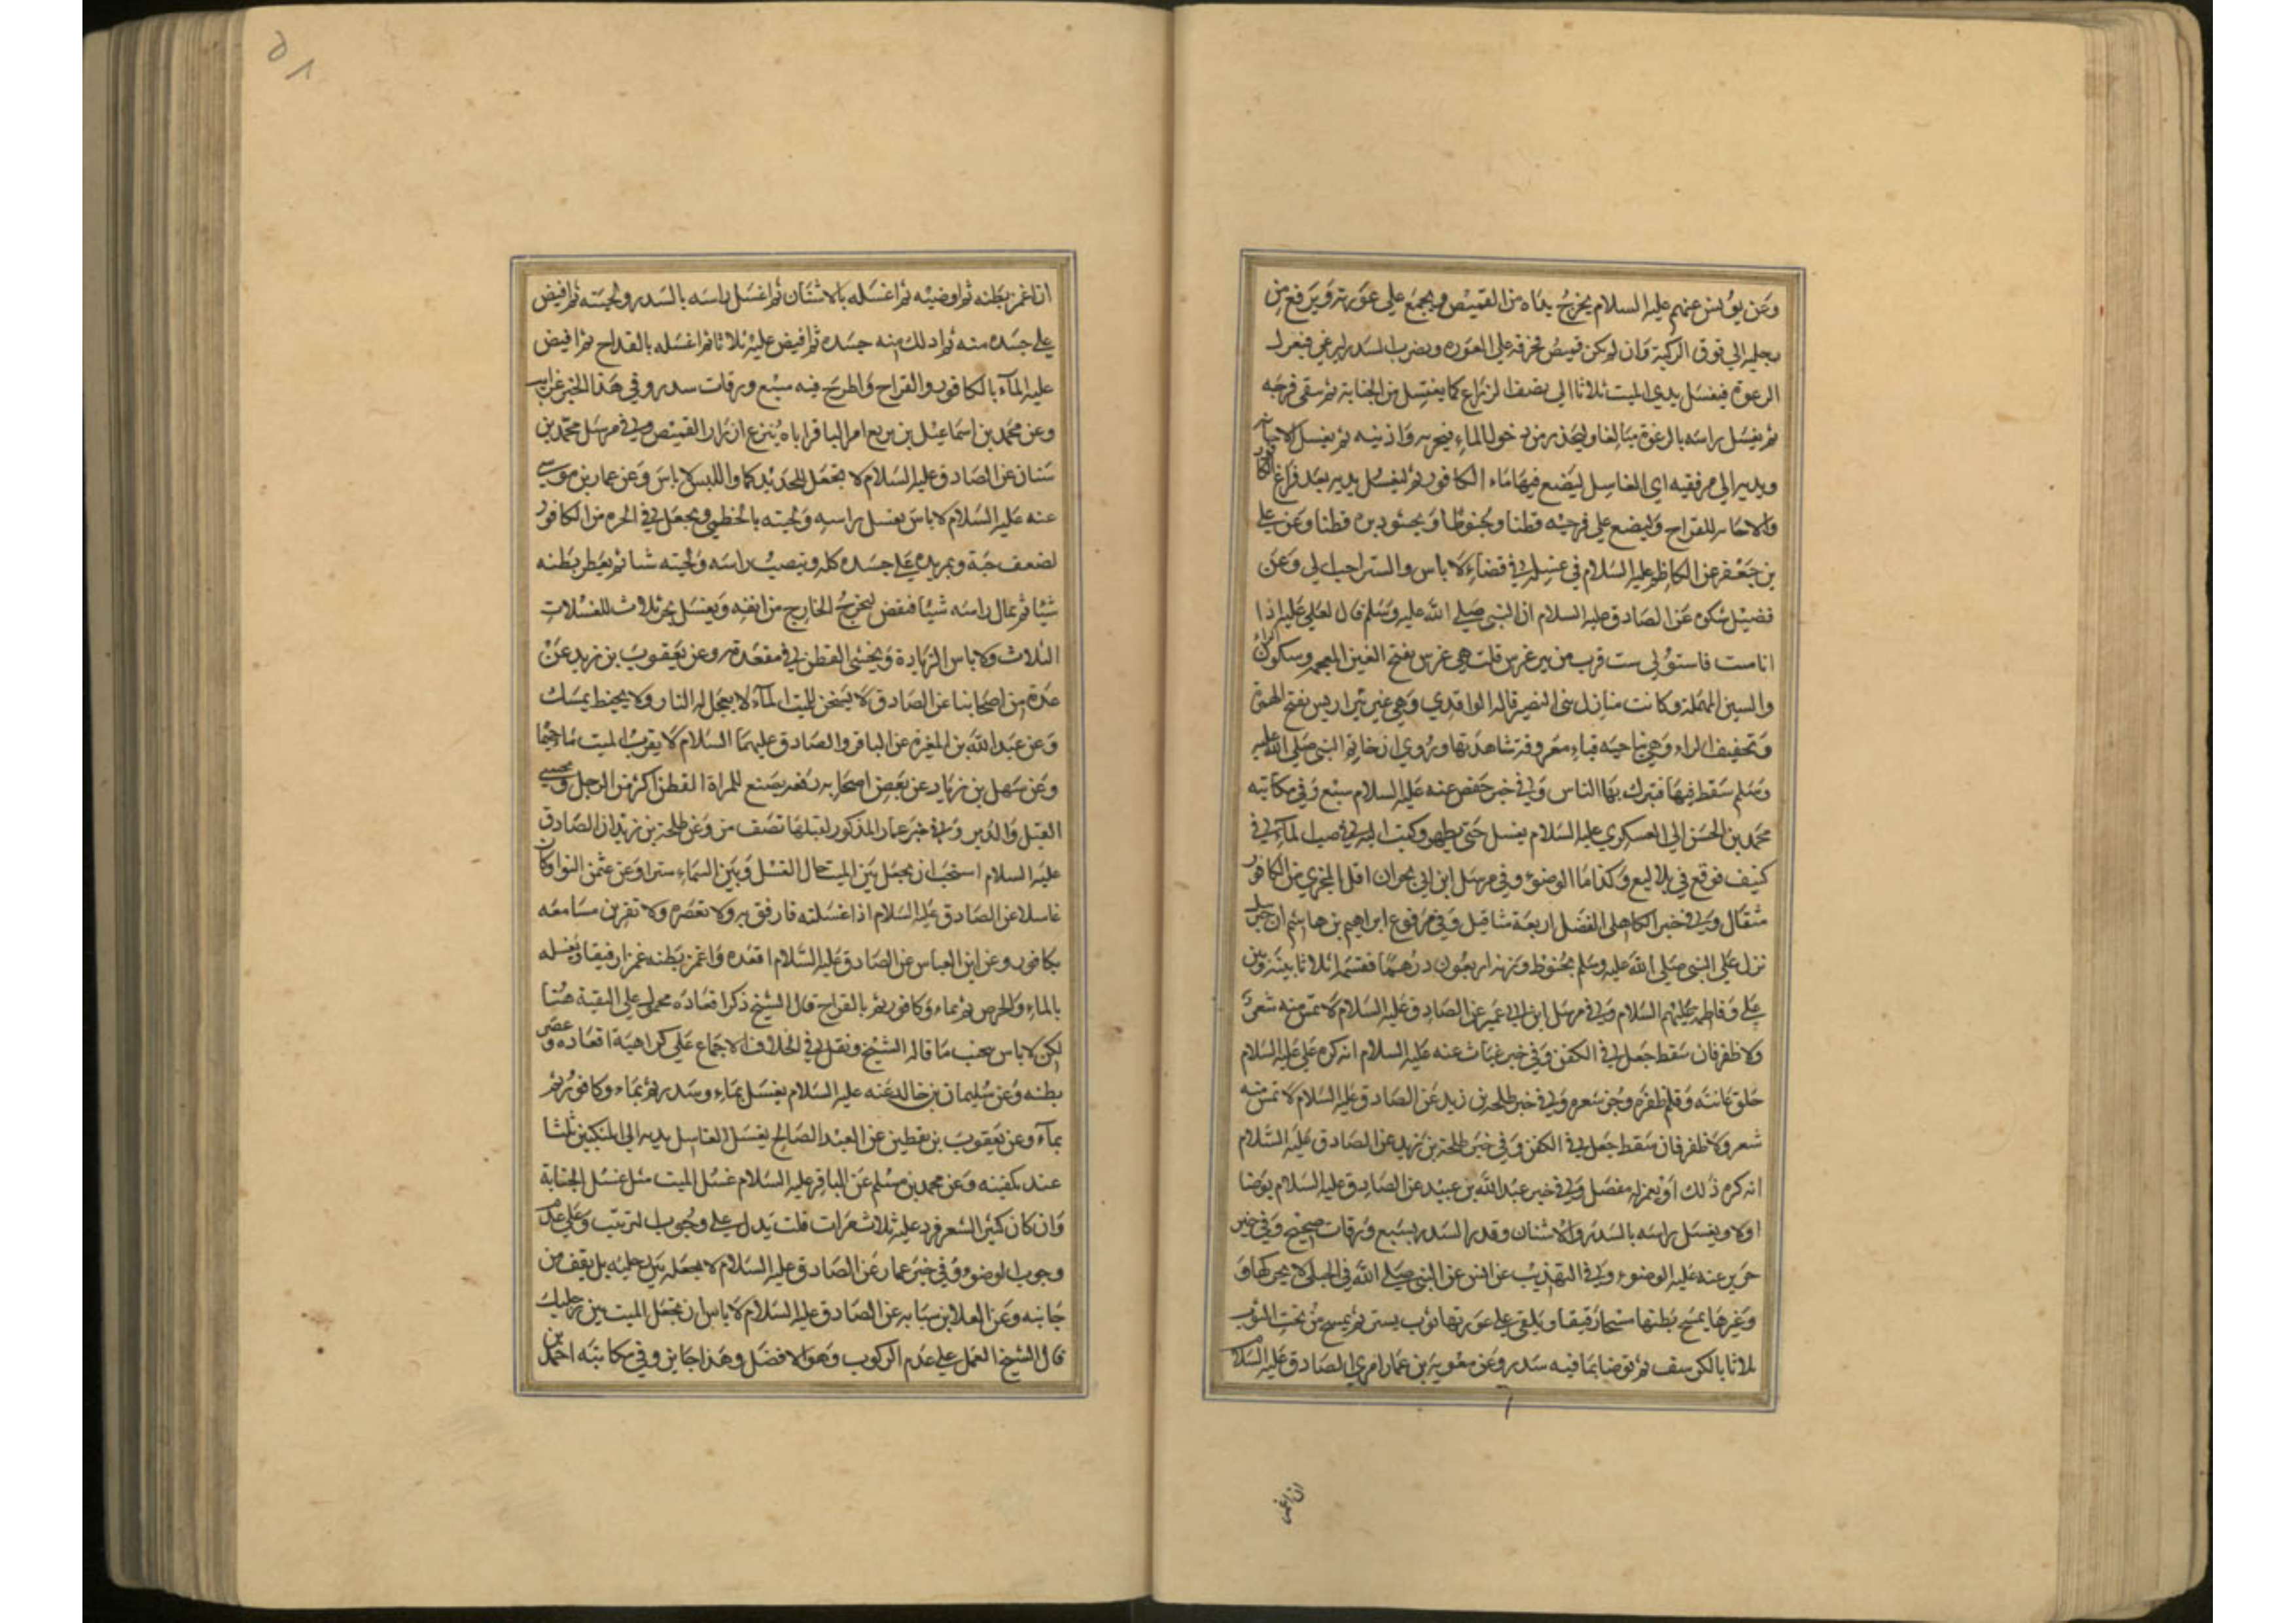 وعن يونس عنهم عليه السلام يخرج يداه من القميص ويجمع على عورته ويرفع من
رجليه الى فوق الركبة وان لم يكن قميص فخرقه على العوره ويضرب السدر ليرغي فيعزل
الرعوة فيغسل يدي الميت ثلاثا الى نصف الذراع كما يغتسل من الجنابة ثم ينقى فرجه
ثم يغسل راسه بالرغوة مبالغا وليحذر من دخول الماء منخريه واذنيه ثم يغسل الاجانه
ويديه الى مرفقيه اي الغاسل ليضع فيها ماء الكافور ثم ليغسل يديه بعد فراغ الكافور
والاجانه للقراح وليضع على فرجيه قطنا وحنوطا ويحشو دبره قطنا وعن علي
بن جعفر عن الكاظم عليه السلام في غسله في فضاء لا باس والستر احب الي وعن
فضيل سكره عن الصادق عليه السلام ان النبي صلى الله عليه وسلم قال لعلي عليه اذا
انا مت فاستق لي ست قرب من بير غرس قلت هي غرس بفتح الغين المعجمه وسكون الراء
والسين المهملة وكانت منازل بني النضير قاله الواقدي وهي غير بئر اريس بفتح الهمزة
وتخفيف الراء وهي بناحيه قباء معروفة شاهدتها وروي ان خاتم النبي صلى الله عليه
وسلم سقط فيها فتبرك بها الناس وفي خبر حفص عنه عليه السلام سبع وفي مكاتبه
محمد بن الحسن الى العسكري عليه السلام يغسل حتى يطهر وكتب اليه في صب الماء في
كنيف فوقع في بلاليع وكذا ما الوضوء وفي مرسل ابن ابي نجران اقل المجزي من الكافور
مثقال وفي خبر الكاهلي الفضل اربعة مثاقيل وفي مرفوع ابراهيم بن هاشم ان جبرئيل
نزل على النبي صلى الله عليه وسلم بحنوط وزنه اربعون درهما فقسمه اثلاثا بينه وبين
علي وفاطمه عليهم السلام وفي مرسل ابن ابي عمير عن الصادق عليه السلام لا تمس منه شعرا
ولا ظفر فان سقط جعل في الكفن وفي خبر غياث عنه عليه السلام انه كره علي عليه السلام
حلق عانته وقلم ظفره وجز شعره وفي خبر طلحه بن زيد عن الصادق عليه السلام لا تمس منه
شعر ولا ظفر فان سقط جعل في الكفن وفي خبر طلحة بن زيد عن الصادق عليه السلام
انه كره ذلك او يعمز له مفصل وفي خبر عبد الله بن عبيد عن الصادق عليه السلام يوضا
اولا ويغسل راسه بالسدر والاشنان وقدر السدر بسبع ورقات صحيح وفي خبر
حريز عنه عليه الوضوء وفي التهذيب عن انس عن النبي صلى الله في الحبلى لا يحركها و
وغيرها يمسح بطنها مسحا رقيقا ويلقى على عورتها ثوب يستر ثم يمسح من تحت الثوب
ثلاثا بالكرسف ثم توضا بما فيه سدر وعن معوية بن عمار امرني الصادق عليه السلام
ان اغمز
٥٨
ان اغمز بطنه ثم اوضيه ثم اغسله بالاشنان ثم اغسل راسه بالسدر ولحيته ثم افيض
على جسده منه ثم ادلك منه جسده ثم افيض عليه ثلاثا ثم اغسله بالقداح ثم افيض
عليه الماء بالكافور والقراح واطرح فيه سبع ورقات سدر وفي هذا الخبر غرايب
وعن محمد بن اسماعيل بن بزيع امر الباقر اباه ينزع ازرار القميص وفي مرسل محمد بن
سنان عن الصادق عليه السلام لا تجعل للجديد كما واللبس لا باس وعن عمار بن موسى
عنه عليه السلام لا باس بغسل راسه ولحيته بالخطمي ويجعل في الجره من الكافور
لضعف حبة ويمر يده على جسده كله وينصب راسه ولحيته شيا ثم يعطر بطنه
شيئا ثم يمال راسه شيئا فينفض ليخرج الخارج من انفه ويغسل بجر ثلاث للغسلات
الثلاث ولا باس الزيادة ويحشى القطن في مقعدته وعن يعقوب بن زيد عن
عدة من اصحابنا عن الصادق لا يسخن للميت الماء لا يعجل له النار ولا يحنط بمسك
وعن عبد الله بن المغيرة عن الباقر والصادق عليهما السلام لا يقرب الميت ما حميما
وعن سهل بن زياد عن بعض اصحابه رفعه يصنع للمراة القطن اكثر من الرجل ويحشى
القبل والدبر وفي خبر عمار المذكور لقبلها نصف من وعن طلحة بن زيد ان الصادق
عليه السلام استحب ان يجعل بين الميت حال الغسل وبين السماء سترا وعن عثمن النوا وكان
غاسلا عن الصادق عليه السلام اذا غسلته فارفق به ولا تعصره ولا تقربن مسامعه
بكافور وعن ابن العباس عن الصادق عليه السلام اقعده واغمز بطنه غمزا رفيقا ويغسله
بالماء والحرص ثم بماء وكافور ثم بالقراح قال الشيخ ذكر اقعاده محمول على التقية هنا
لكن لا باس بحب ما قاله الشيخ ونقل في الخلاف الاجماع على كراهية اقعاده وعصر
بطنه وعن سليمان بن خالد عنه عليه السلام يغسل بماء وسدر ثم بماء وكافور ثم
بماء وعن يعقوب بن يقطين عن العبد الصالح يغسل الغاسل يديه الى المنكبين ثلثا
عند تكفينه وعن محمد بن مسلم عن الباقر عليه السلام غسل الميت مثل غسل الجنابة
وان كان كثير الشعر فرد عليه ثلاث مرات قلت يدل على وجوب الترتيب وعلى عدم
وجوب الوضوء وفي خبر عمار عن الصادق عليه السلام لا يجعله بين رجليه بل يقف من
جانبه وعن العلا بن سيابه عن الصادق عليه السلام لا باس ان تجعل الميت بين رجليك
قال الشيخ العمل على عدم الركوب وهو الافضل وهذا جايز وفي مكاتبه احمد بن